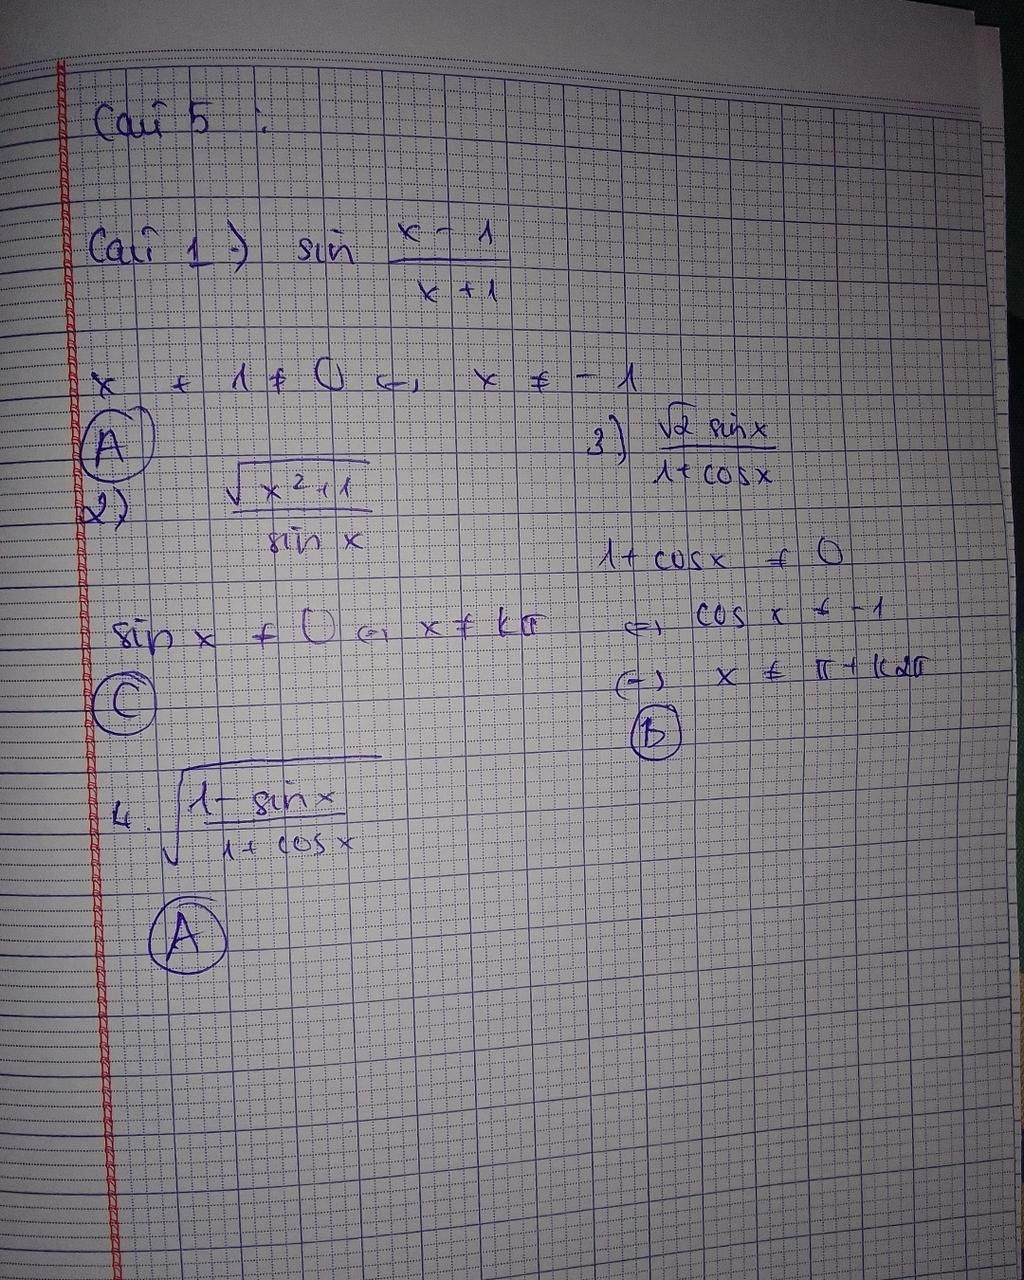 Câu 5 :
Câu 1 :) sin (x - 1)/(x + 1)
x + 1 ≠ 0 <=> x ≠ - 1
A
2) √(x² + 1) / sin x
sin x ≠ 0 <=> x ≠ kπ
C
3) √2 sin x / (1 + cos x)
1 + cos x ≠ 0
<=> cos x ≠ -1
<=> x ≠ π + k2π
B
4. √((1 - sin x)/(1 + cos x))
A